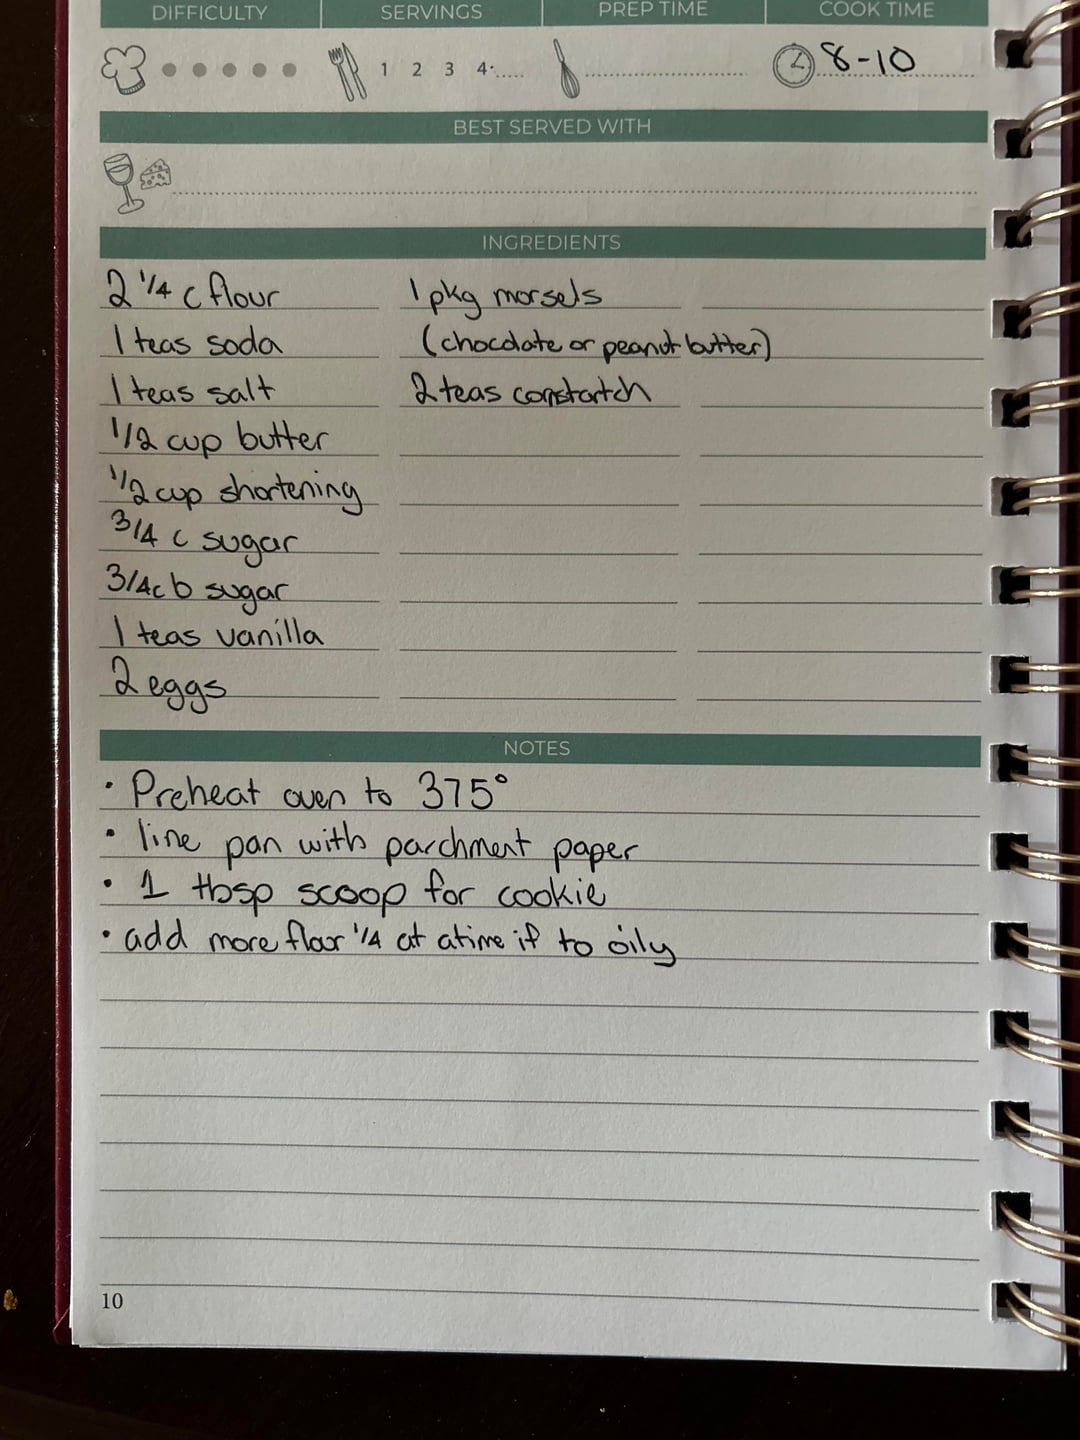 DIFFICULTY SERVINGS PREP TIME COOK TIME
1 2 3 4....... 8-10
BEST SERVED WITH
INGREDIENTS
2 1/4 c flour 1 pkg morsels
1 teas soda (chocolate or peanut butter)
1 teas salt 2 teas cornstartch
1/2 cup butter
1/2 cup shortening
3/4 c sugar
3/4 c b sugar
1 teas vanilla
2 eggs
NOTES
· Preheat oven to 375°
· line pan with parchment paper
· 1 tbsp scoop for cookie
· add more flour 1/4 at atime if to oily
10